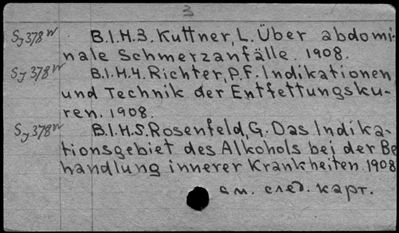 3
Sy 378 w B.I.H.3. Kuttner, L. Über abdomi-
nale Schmerzanfälle. 1908.
Sy 378 w B.I.H.4. Richter, P.F. Indikationen
und Technik der Entfettungsku-
ren. 1908.
Sy 378 w B.I.H.5. Rosenfeld, G. Das Indika-
tionsgebiet des Alkohols bei der Be
handlung innerer Krankheiten. 1908
см. след. карт.